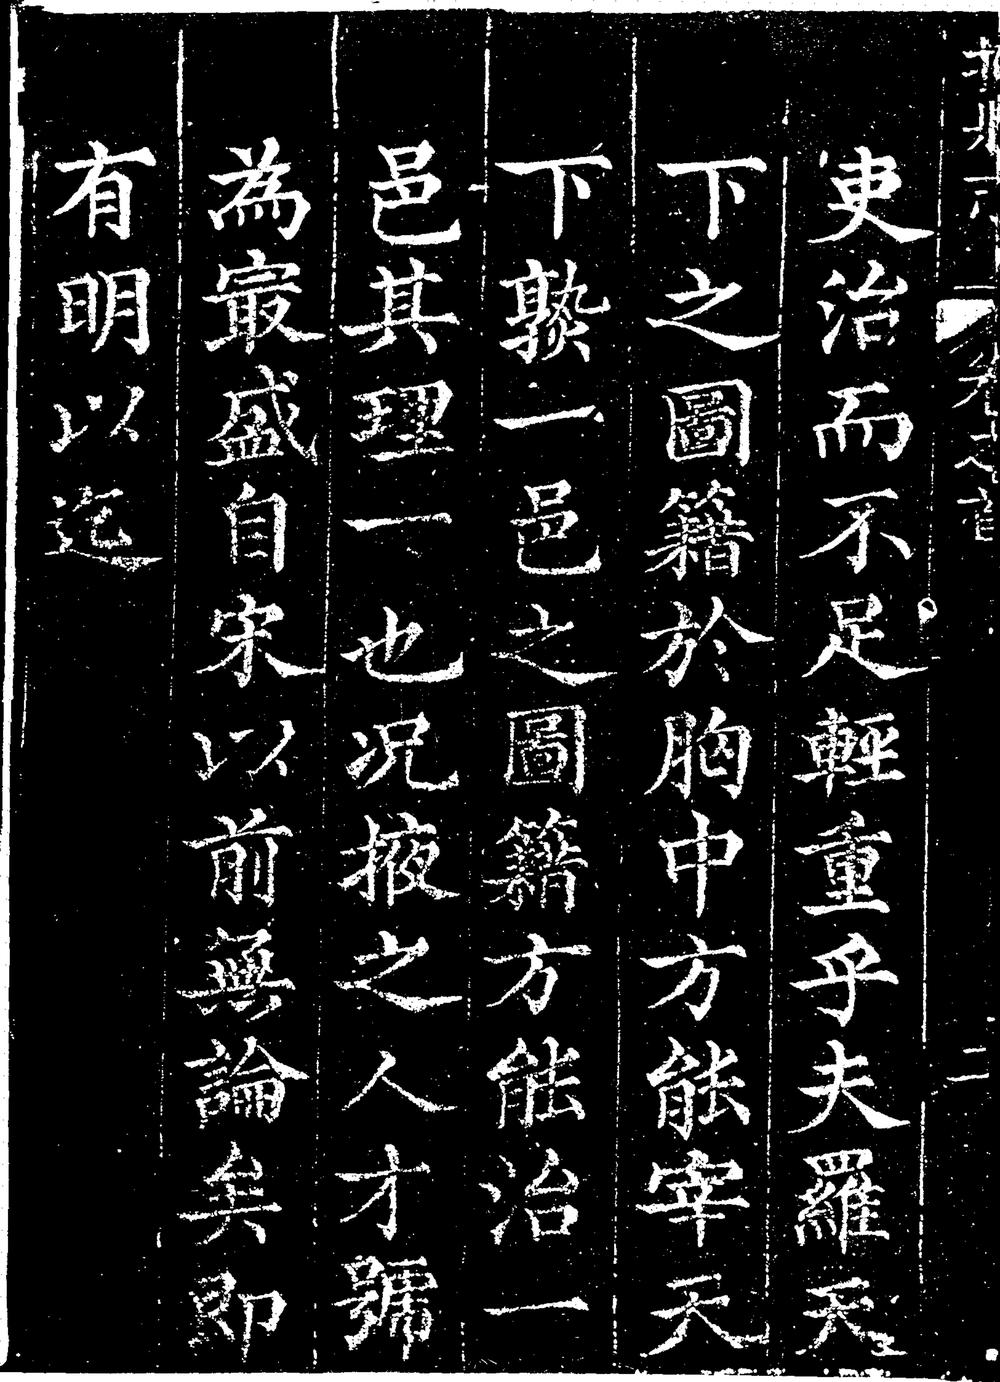 吏治而不足輕重乎夫羅天
下之圖籍於胸中方能宰天
下褺一邑之圖籍方能治一
邑其理一也况掖之人才號
為㝡盛自宋以前無論矣即
有明以迄
二